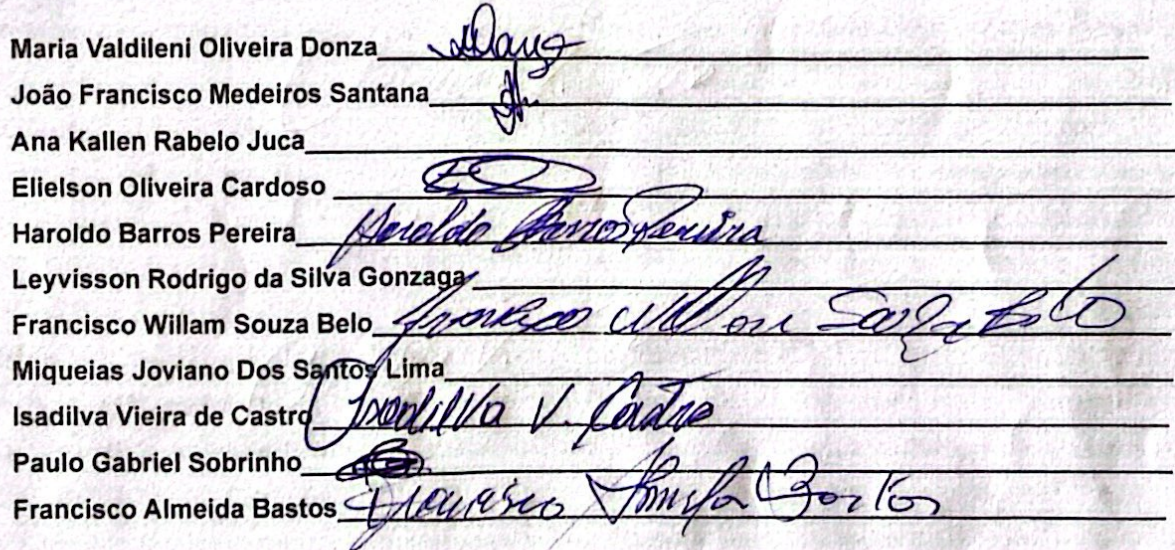 Maria Valdileni Oliveira Donza
João Francisco Medeiros Santana
Ana Kallen Rabelo Juca
Elielson Oliveira Cardoso
Haroldo Barros Pereira Haroldo Barros Pereira
Leyvisson Rodrigo da Silva Gonzaga
Francisco Willam Souza Belo Francisco Souza Belo
Miqueias Joviano Dos Santos Lima
Isadilva Vieira de Castro Isadilva V. Castro
Paulo Gabriel Sobrinho
Francisco Almeida Bastos Francisco Bastos